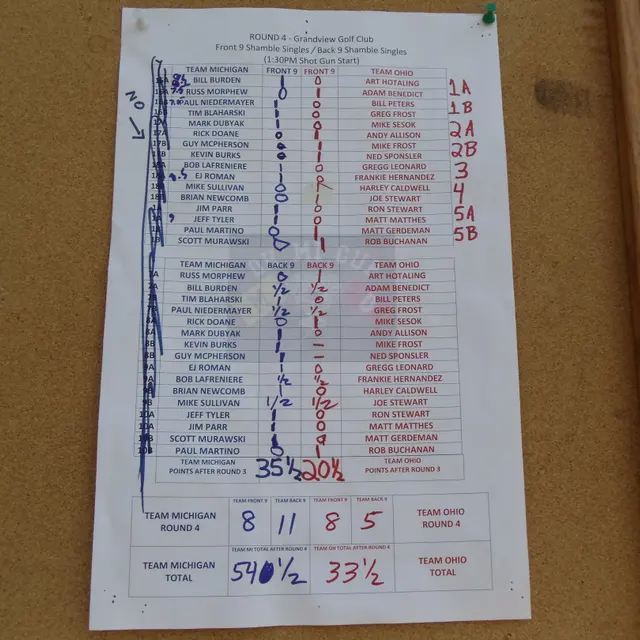 ROUND 4 - Grandview Golf Club
Front 9 Shamble Singles / Back 9 Shamble Singles
(1:30PM Shot Gun Start)
TEAM MICHIGAN FRONT 9 FRONT 9 TEAM OHIO
BILL BURDEN 1 0 ART HOTALING 1A
RUSS MORPHEW 0 1 ADAM BENEDICT
PAUL NIEDERMAYER 1 0 BILL PETERS 1B
TIM BLAHARSKI 1 0 GREG FROST
MARK DUBYAK 1 0 MIKE SESOK 2A
RICK DOANE 0 1 ANDY ALLISON
GUY MCPHERSON 0 1 MIKE FROST 2B
KEVIN BURKS 0 1 NED SPONSLER
BOB LAFRENIERE 1 0 GREGG LEONARD 3
EJ ROMAN 1 0 FRANKIE HERNANDEZ
MIKE SULLIVAN 0 HARLEY CALDWELL 4
BRIAN NEWCOMB 0 1 JOE STEWART
JIM PARR 1 0 RON STEWART 5A
JEFF TYLER 1 0 MATT MATTHES
PAUL MARTINO 0 1 MATT GERDEMAN 5B
SCOTT MURAWSKI 0 1 ROB BUCHANAN
NO
TEAM MICHIGAN BACK 9 BACK 9 TEAM OHIO
RUSS MORPHEW 0 1 ART HOTALING
BILL BURDEN 1/2 1/2 ADAM BENEDICT
TIM BLAHARSKI 1 0 BILL PETERS
PAUL NIEDERMAYER 1/2 1/2 GREG FROST
RICK DOANE 0 1 MIKE SESOK
MARK DUBYAK 1 0 ANDY ALLISON
KEVIN BURKS 1 – MIKE FROST
GUY MCPHERSON 1 – NED SPONSLER
EJ ROMAN 1 0 GREGG LEONARD
BOB LAFRENIERE 1/2 1/2 FRANKIE HERNANDEZ
BRIAN NEWCOMB 1 0 HARLEY CALDWELL
MIKE SULLIVAN 1/2 1/2 JOE STEWART
JEFF TYLER 1 0 RON STEWART
JIM PARR 1 0 MATT MATTHES
SCOTT MURAWSKI 1 0 MATT GERDEMAN
PAUL MARTINO 0 1 ROB BUCHANAN
TEAM MICHIGAN POINTS AFTER ROUND 3 35 1/2 20 1/2 TEAM OHIO POINTS AFTER ROUND 3
TEAM FRONT 9 TEAM BACK 9 TEAM FRONT 9 TEAM BACK 9
TEAM MICHIGAN ROUND 4 8 11 8 5 TEAM OHIO ROUND 4
TEAM MI TOTAL AFTER ROUND 4 TEAM OH TOTAL AFTER ROUND 4
TEAM MICHIGAN TOTAL 54 1/2 33 1/2 TEAM OHIO TOTAL